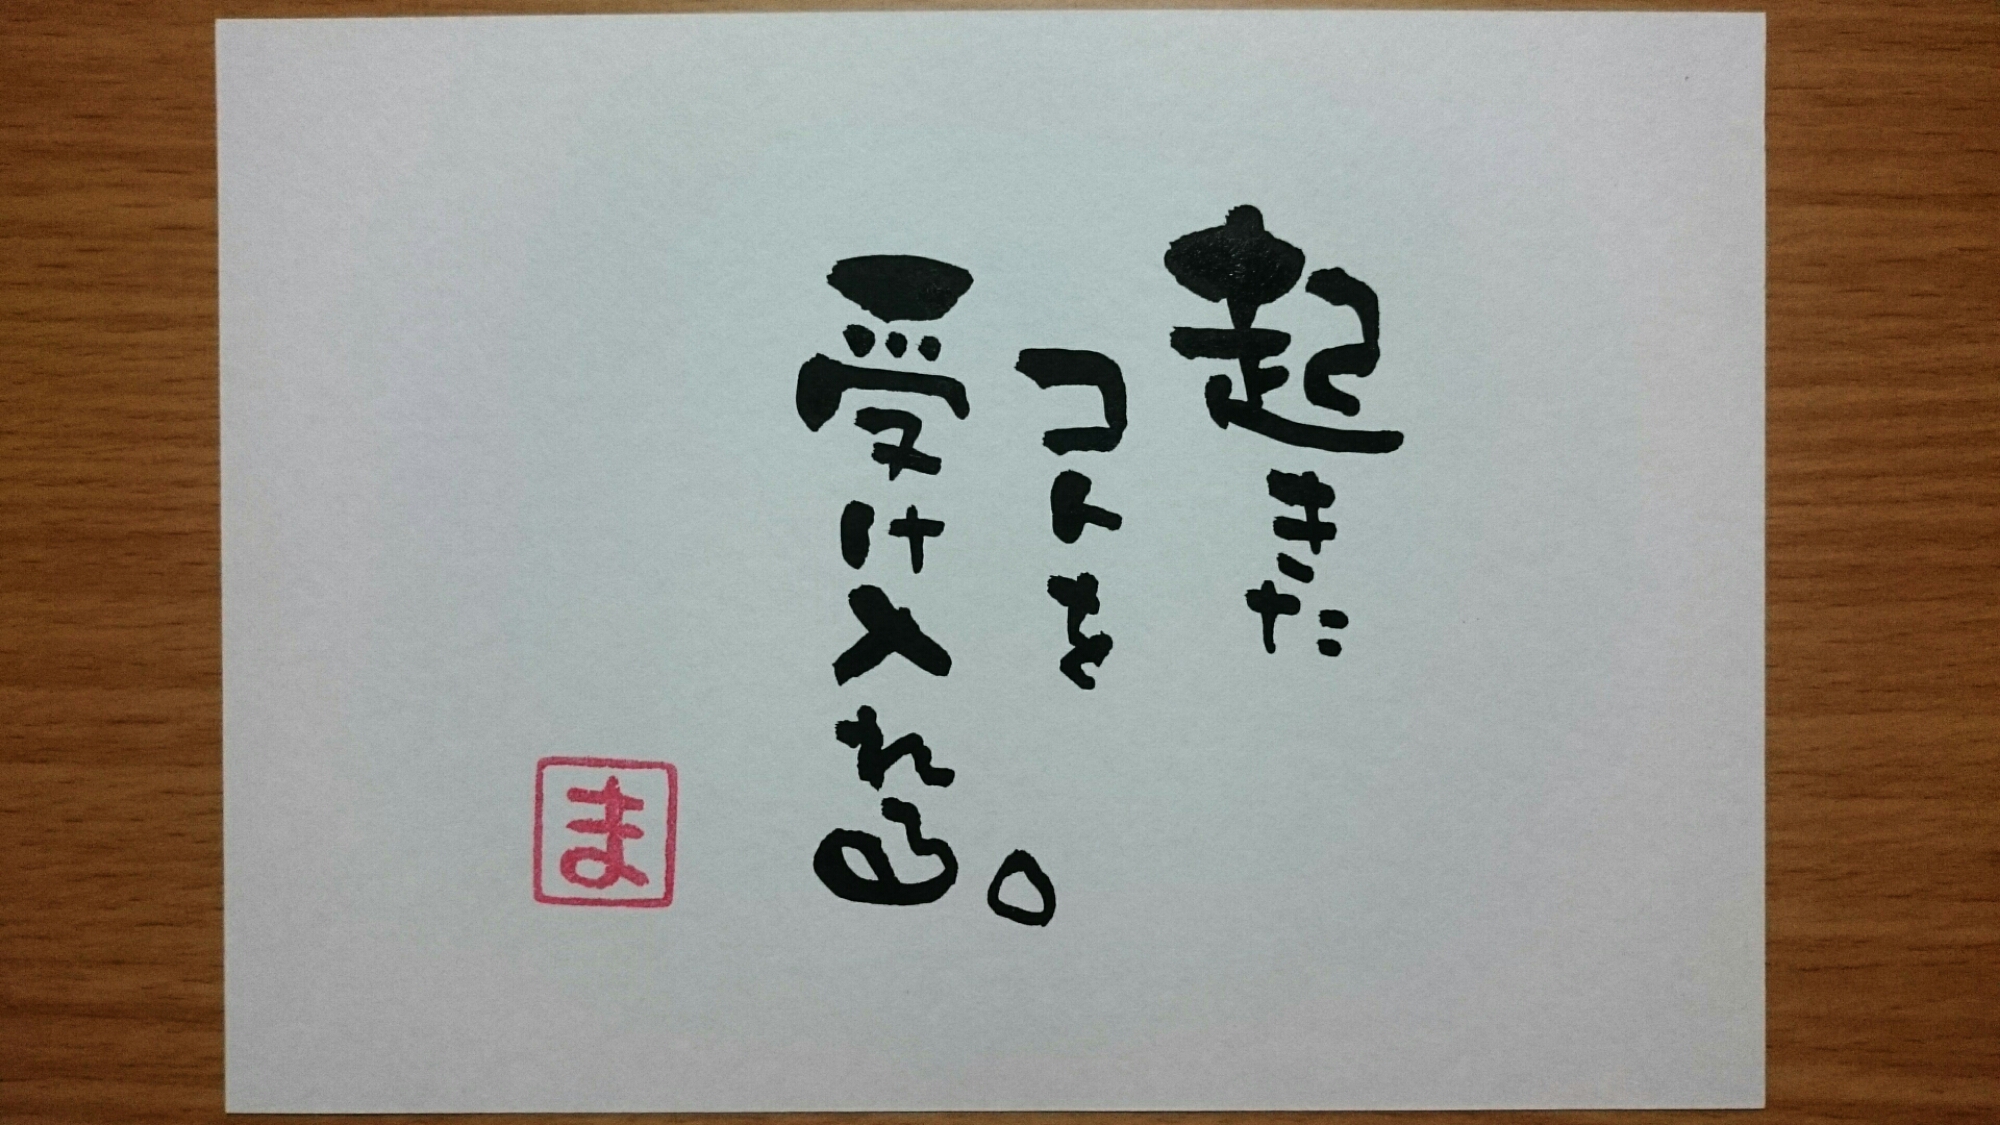 起きた
コトを
受け入れる。
ま